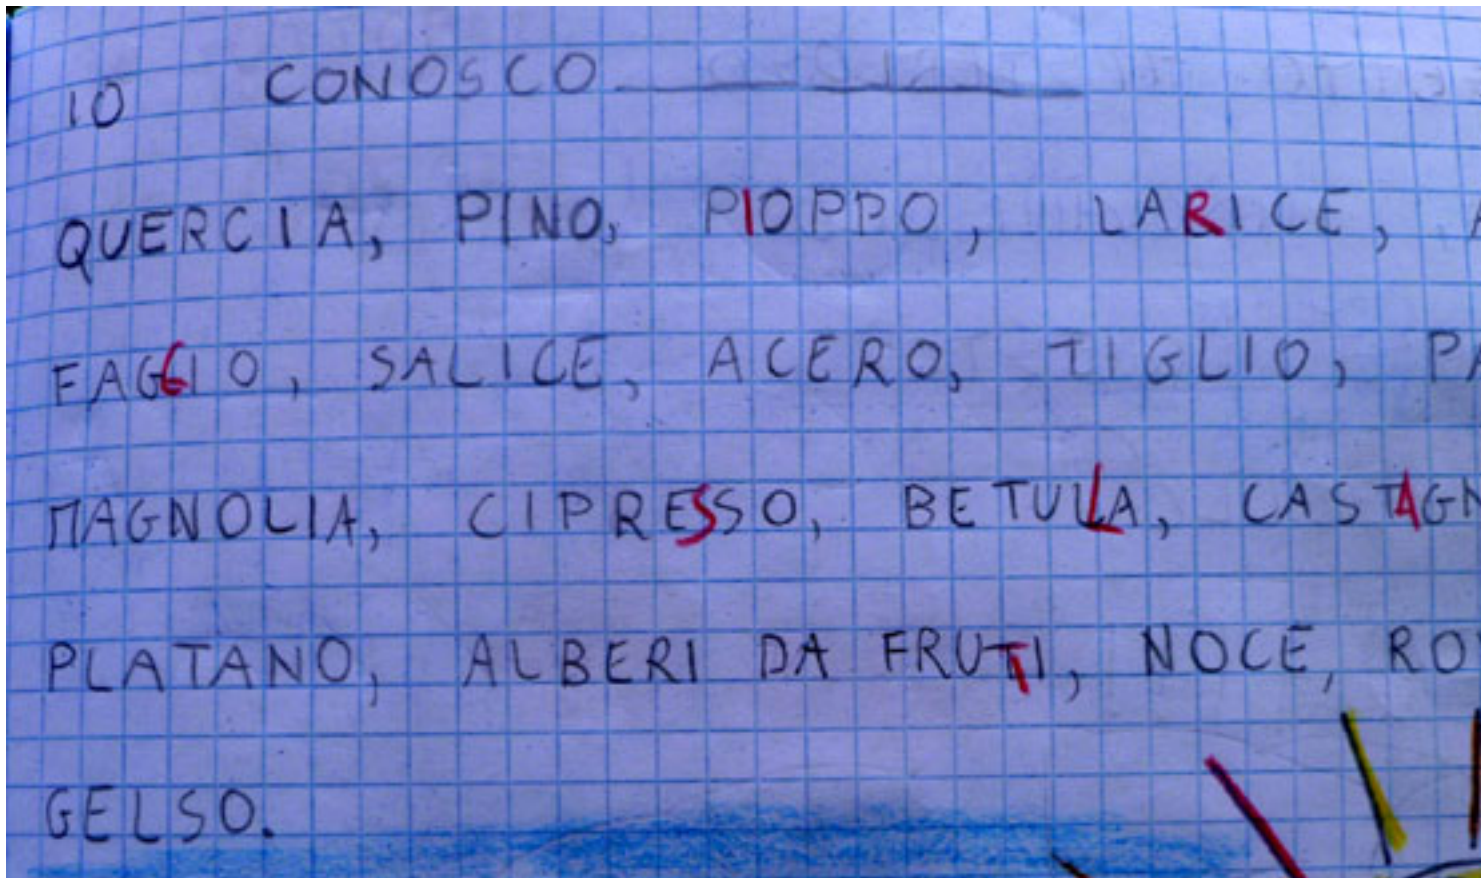 IO CONOSCO
QUERCIA, PINO, PIOPPO, LARICE,
FAGGIO, SALICE, ACERO, TIGLIO,
MAGNOLIA, CIPRESSO, BETULLA, CASTAGN
PLATANO, ALBERI DA FRUTTI, NOCE,
GELSO.